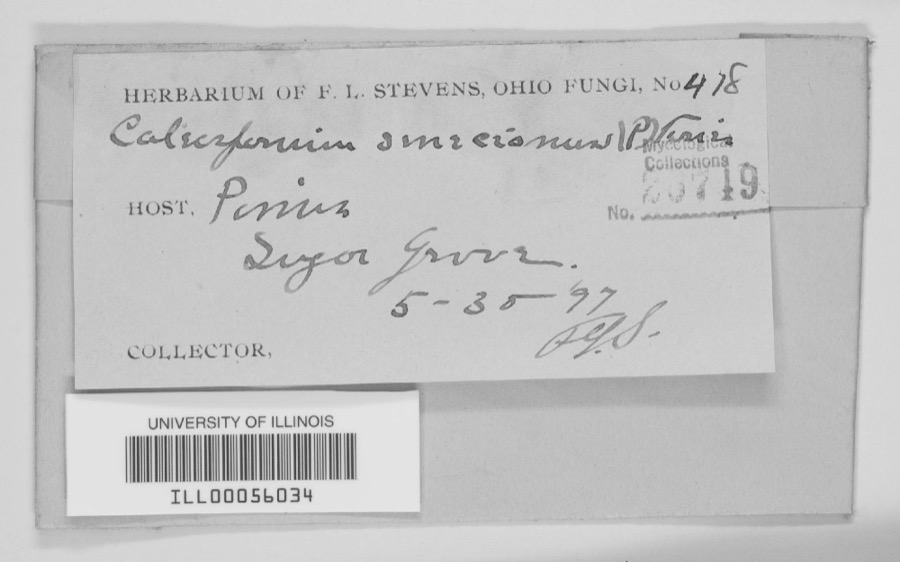 HERBARIUM OF F. L. STEVENS, OHIO FUNGI, No 478
Coleosporium senecionus (P) Fries
Mycological
Collections
No. 719
HOST, Pinus
Sugar Grove.
5-30-97
F.L.S.
COLLECTOR,
UNIVERSITY OF ILLINOIS
ILL00056034